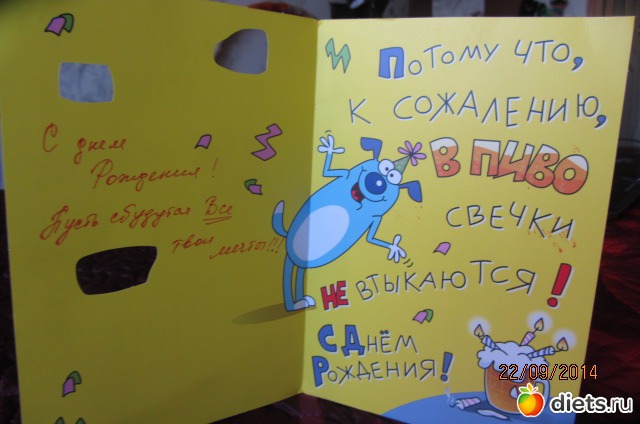 С днем
Рождения!
Пусть сбудутся Все
твои мечты!!!
Потому что,
к сожалению,
в пиво
свечки
не втыкаются!
С Днём
Рождения!
22/09/2014
diets.ru